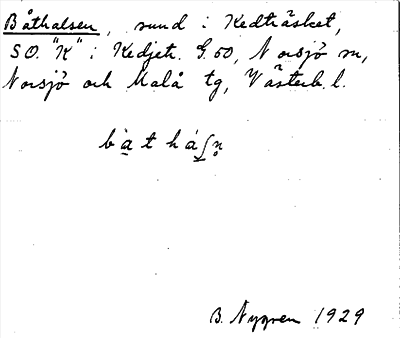 Båthalsen, sund i Kedträsket,
SO. "K" i Kedjetr. G.50, Norsjö sn,
Norsjö och Malå tg, Västerb. l.
bàthálʃn̥
B. Nygren 1929